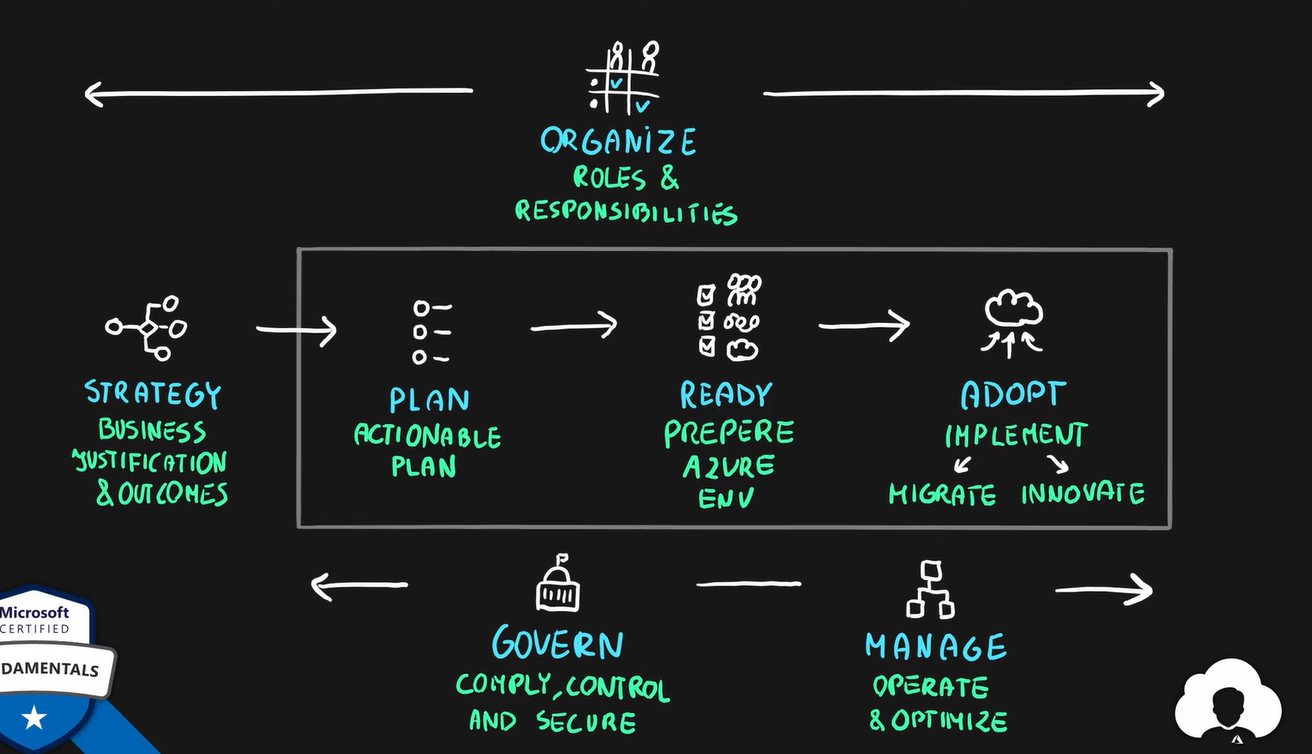 ORGANIZE
ROLES &
RESPONSIBILITIES
STRATEGY
BUSINESS
JUSTIFICATION
& OUTCOMES
PLAN
ACTIONABLE
PLAN
READY
PREPERE
AZURE
ENV
ADOPT
IMPLEMENT
MIGRATE INNOVATE
GOVERN
COMPLY, CONTROL
AND SECURE
MANAGE
OPERATE
& OPTIMIZE
Microsoft
CERTIFIED
DAMENTALS